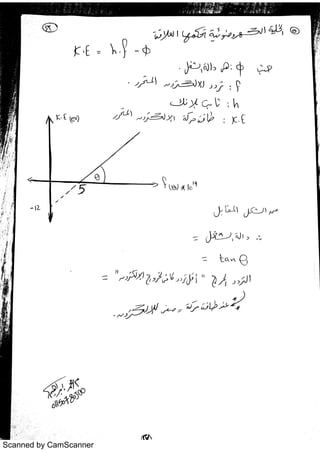 (١٣)
⑤ الخلية الكهروضوئية تحكمها العلاقة
K.E = h.f - Φ
حيث Φ: هي دالة الشغل.
f: تردد الإلكترون المتحرر.
h: ثابت بلانك
K.E: طاقة حركة الإلكترون المتحرر
K.E (ev)
θ
5
f (Hz) x 10¹⁴
-12
من الشكل المقابل
∴ دالة الشغل =
tan θ =
التردد الحرج "أقل تردد كافي لخروج الإلكترون" =
عند طاقة حركة = صفر للإلكترون.
Scanned by CamScanner